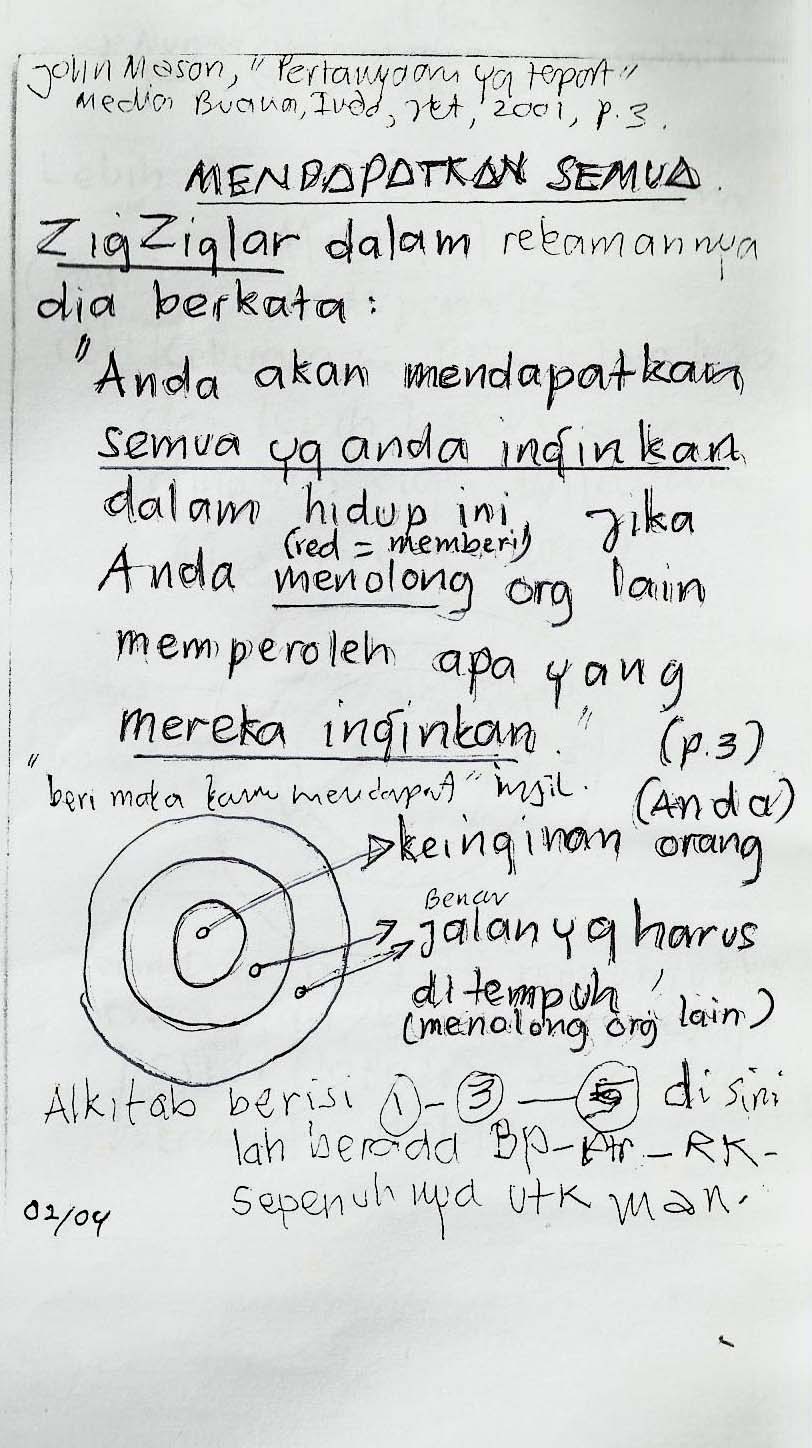 John Mason, "Pertanyaan yg tepat"
Media Buana, Indo, Jkt, 2001, p.3.
MENDAPATKAN SEMUA.
Zig Ziglar dalam rekamannya
dia berkata:
"Anda akan mendapatkan
semua yg anda inginkan
dalam hidup ini, jika
(red = memberi)
Anda menolong org lain
memperoleh apa yang
mereka inginkan." (p.3)
"beri maka kamu mendapat" injil. (Anda)
keinginan orang
Benar
jalan yg harus
ditempuh
(menolong org lain)
Alkitab berisi ①-③—⑤ disini
lah berada BP- -RK-
sepenuhnya utk man.
02/04